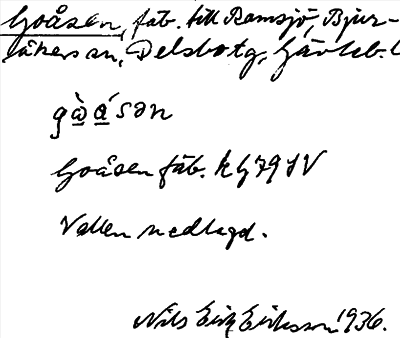 Goåsen, fäb. till Ramsjö, Bjur-
åkers sn, Delsbo tg, Gävleb. l
gὼɑ́sən
Goåsen fäb. k G 79 SV
Vallen nedlagd.
Nils Erik Eriksson 1936.